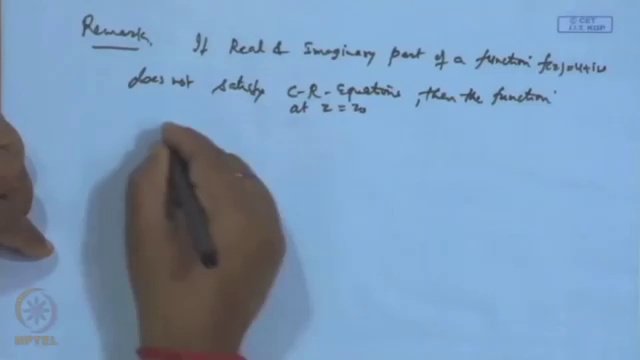 Remark If Real & Imaginary part of a function f(z)=u+iv
does not satisfy C-R-Equations, then the function
at z=z₀
© CET
I.I.T. KGP
NPTEL